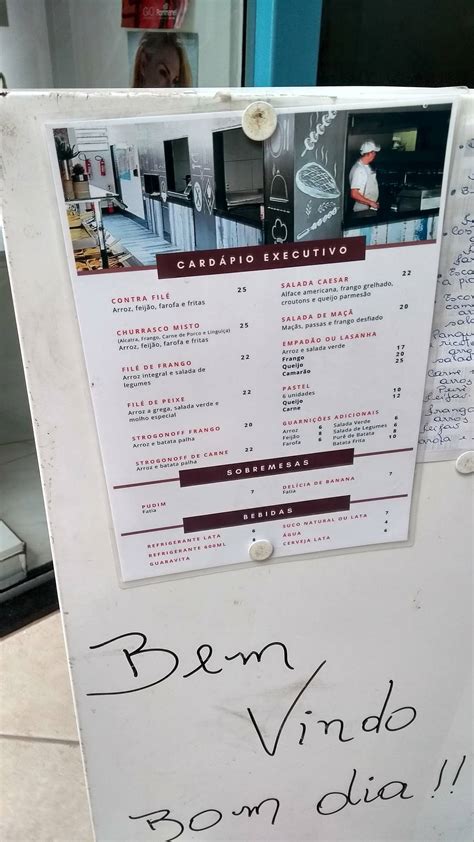 CARDÁPIO EXECUTIVO
CONTRA FILÉ 25
Arroz, feijão, farofa e fritas
CHURRASCO MISTO 25
(Alcatra, Frango, Carne de Porco e Linguiça)
Arroz, feijão, farofa e fritas
FILÉ DE FRANGO 22
Arroz integral e salada de
legumes
FILÉ DE PEIXE 22
Arroz a grega, salada verde e
molho especial
STROGONOFF FRANGO 20
Arroz e batata palha
STROGONOFF DE CARNE 22
Arroz e batata palha
SALADA CAESAR 22
Alface americana, frango grelhado,
croutons e queijo parmesão
SALADA DE MAÇÃ 20
Maçãs, passas e frango desfiado
EMPADÃO OU LASANHA
Arroz e salada verde 17
Frango 20
Queijo 25
Camarão
PASTEL 10
6 unidades 12
Queijo
Carne
GUARNIÇÕES ADICIONAIS
Arroz 6 Salada Verde 6
Feijão 6 Salada de Legumes 8
Farofa 6 Purê de Batata 6
Batata Frita 10
SOBREMESAS
PUDIM 7
Fatia
DELÍCIA DE BANANA 7
Fatia
BEBIDAS
REFRIGERANTE LATA 6
REFRIGERANTE 600ML
GUARAVITA
SUCO NATURAL OU LATA 7
ÁGUA 4
CERVEJA LATA 6
Bem
Vindo
Bom dia!!